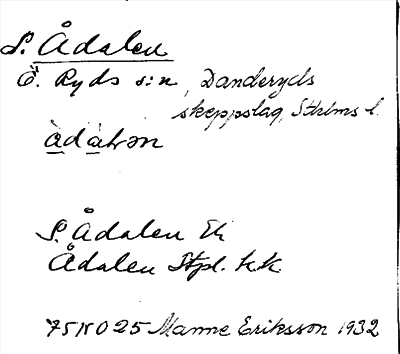 S. Ådalen
Ö. Ryds s:n, Danderyds
skeppslag, Sthlms l.
S. Ådalen Ek
Ådalen Stpl. kk
75 N O 25 Manne Eriksson 1932